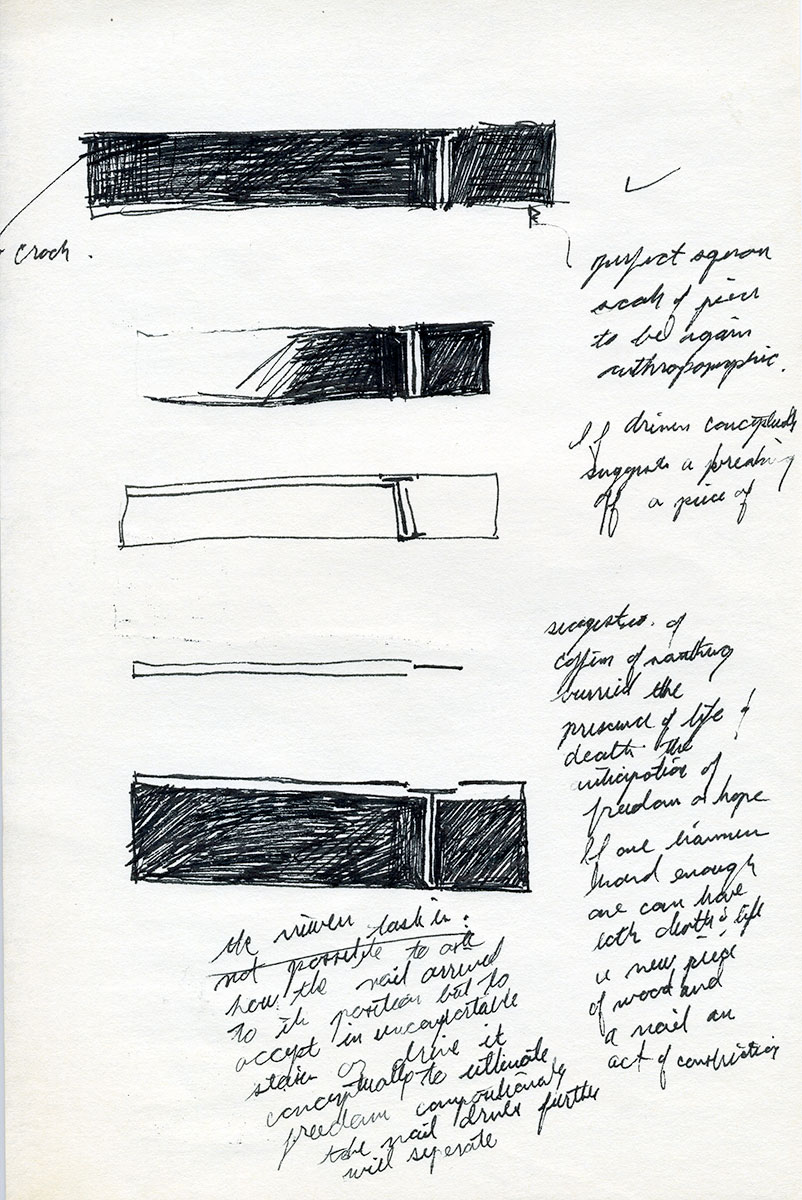 Crack.
perfect square
scale of piece
to be again
anthropomorphic.
If driven conceptually
suggests a breaking
off a piece of
suggestion. of
coffin of nothing
burried the
presence of life &
death the
anticipation of
freedom or hope
If one hammers
hard enough
one can have
both death & life
a new piece
of wood and
a nail an
act of construction
the viewer task is:
not possible to ask
how the nail arrived
to its position but to
accept in uncomfortable
or drive it
conceptually to ultimate
freedom compositionaly
the nail driven further
will seperate